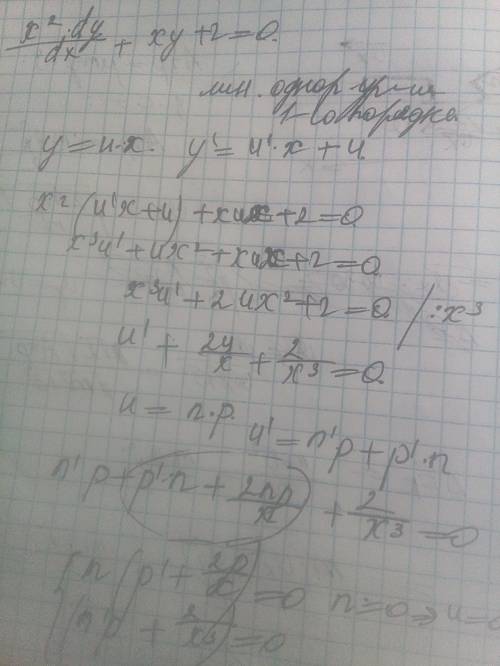 x² dy/dx + xy + 2 = 0.
лин. однор ур-ия
1-го порядка
y = u·x. y' = u'·x + u.
x² (u'x + u) + xux + 2 = 0
x³u' + ux² + xux + 2 = 0
x³u' + 2ux² + 2 = 0 / :x³
u' + 2u/x + 2/x³ = 0
u = n·p. u' = n'p + p'·n
n'p + p'·n + 2np/x + 2/x³ = 0
n (p' + 2p/x) = 0 n = 0 ⇒ u = 0
n'p + 2/x³ = 0